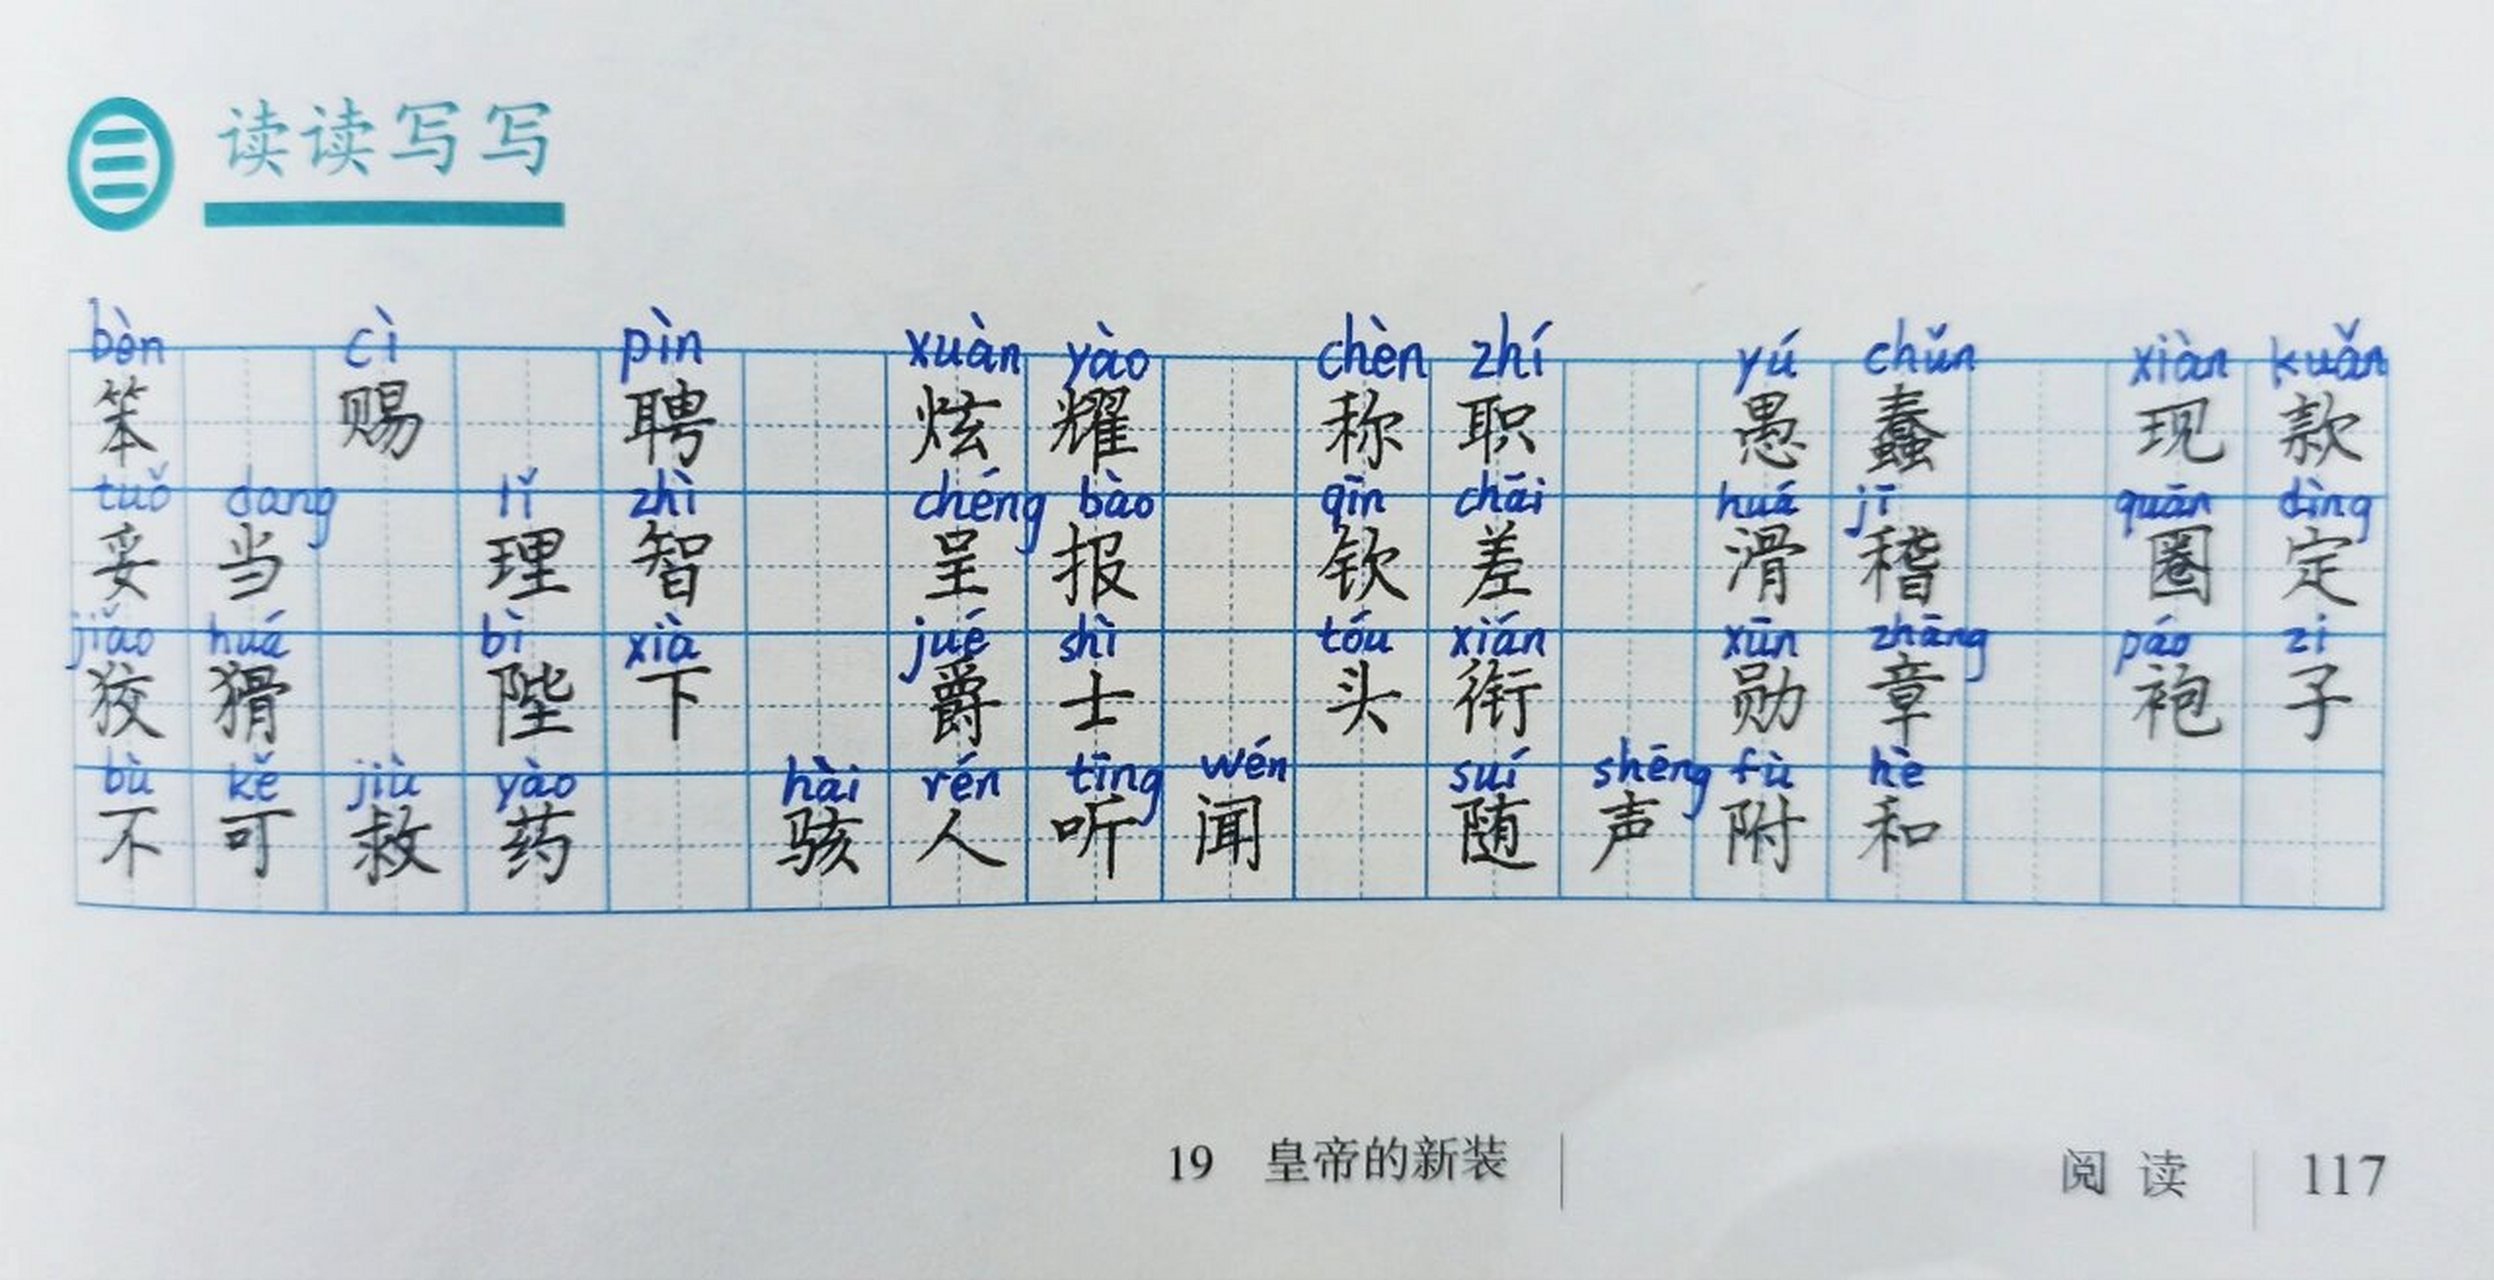 三 读读写写
bèn cì pìn xuàn yào chèn zhí yú chǔn xiàn kuǎn
笨 赐 聘 炫耀 称职 愚蠢 现款
tuǒ dang lǐ zhì chéng bào qīn chāi huá jī quān dìng
妥当 理智 呈报 钦差 滑稽 圈定
jiǎo huá bì xià jué shì tóu xián xūn zhāng páo zi
狡猾 陛下 爵士 头衔 勋章 袍子
bù kě jiù yào hài rén tīng wén suí shēng fù hè
不可救药 骇人听闻 随声附和
19 皇帝的新装 阅读 117